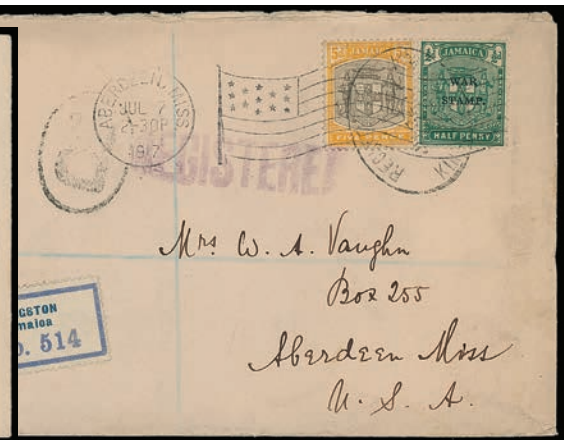 ABERDEEN, MISS
JUL 7
2-30P
1917
REGISTERED
JAMAICA
FIVE PENNY
JAMAICA
WAR
STAMP.
HALF PENNY
Mrs W. A. Vaughn
Box 255
Aberdeen Miss
U. S. A.
GSTON
maica
o. 514